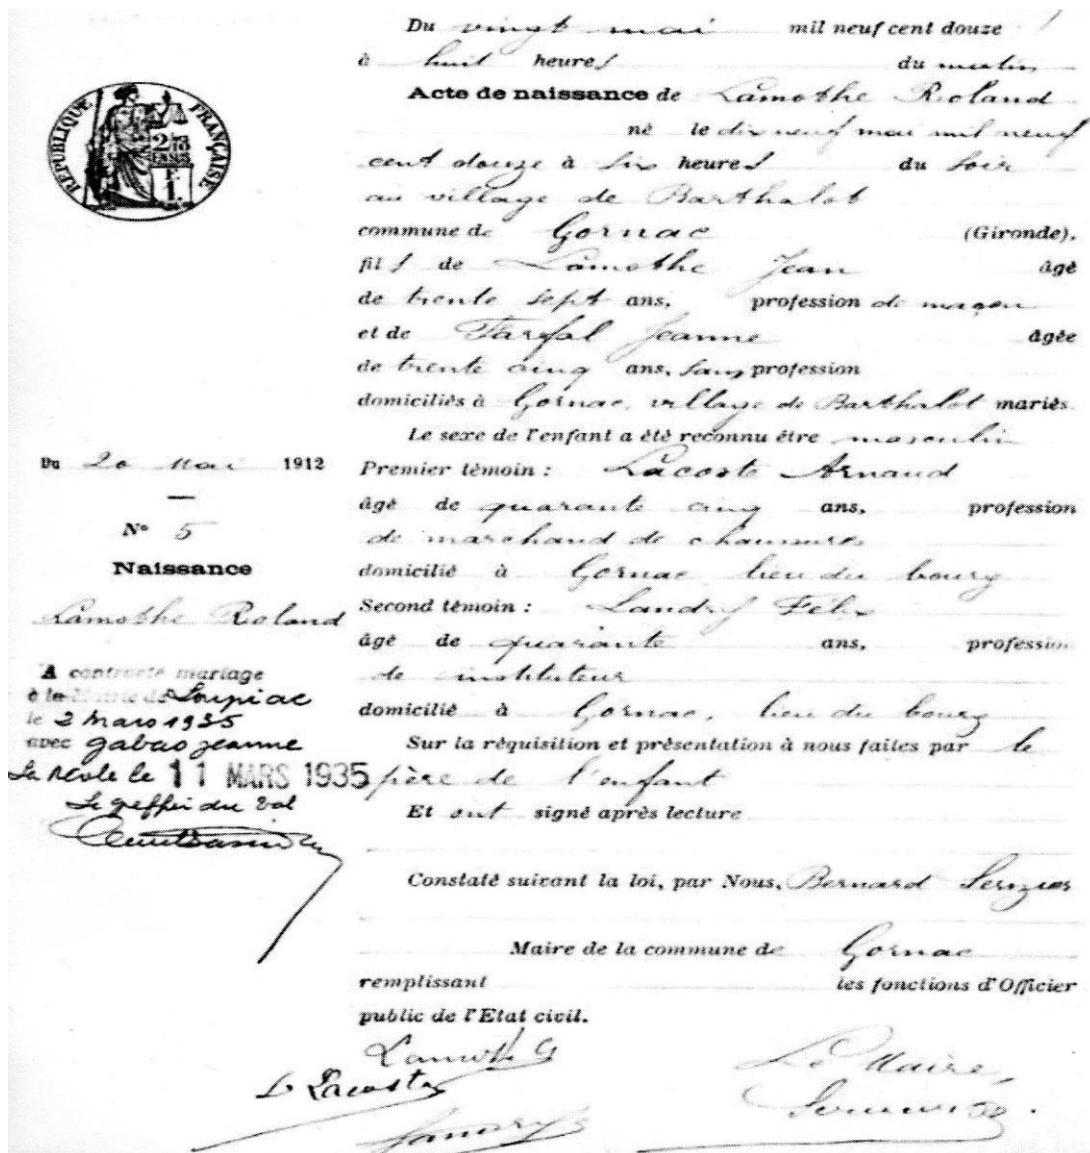 RÉPUBLIQUE FRANÇAISE
Du 20 Mai 1912
N° 5
Naissance
Lamothe Roland
A contracté mariage
à la Mairie de Loupiac
le 2 mars 1935
avec gabas jeanne
La Réole le 11 MARS 1935
Le greffier du
Du vingt mai mil neuf cent douze
à huit heures du matin
Acte de naissance de Lamothe Roland
né le dix neuf mai mil neuf
cent douze à six heures du soir
au village de Barthalot
commune de Gornac (Gironde),
fils de Lamothe Jean âgé
de trente sept ans, profession de maçon
et de Jeanne âgée
de trente cinq ans, sans profession
domiciliés à Gornac, village de Barthalot mariés.
Le sexe de l'enfant a été reconnu être masculin
Premier témoin : Lacoste Arnaud
âgé de quarante cinq ans, profession
de marchand de chaussures
domicilié à Gornac lieu du bourg
Second témoin : Landry Félix
âgé de quarante ans, profession
de instituteur
domicilié à Gornac, lieu du bourg
Sur la réquisition et présentation à nous faites par le
père de l'enfant
Et ont signé après lecture
Constaté suivant la loi, par Nous, Bernard
Maire de la commune de Gornac
remplissant les fonctions d'Officier
public de l'Etat civil.
Lamothe
Lacoste
Landry
Le Maire,